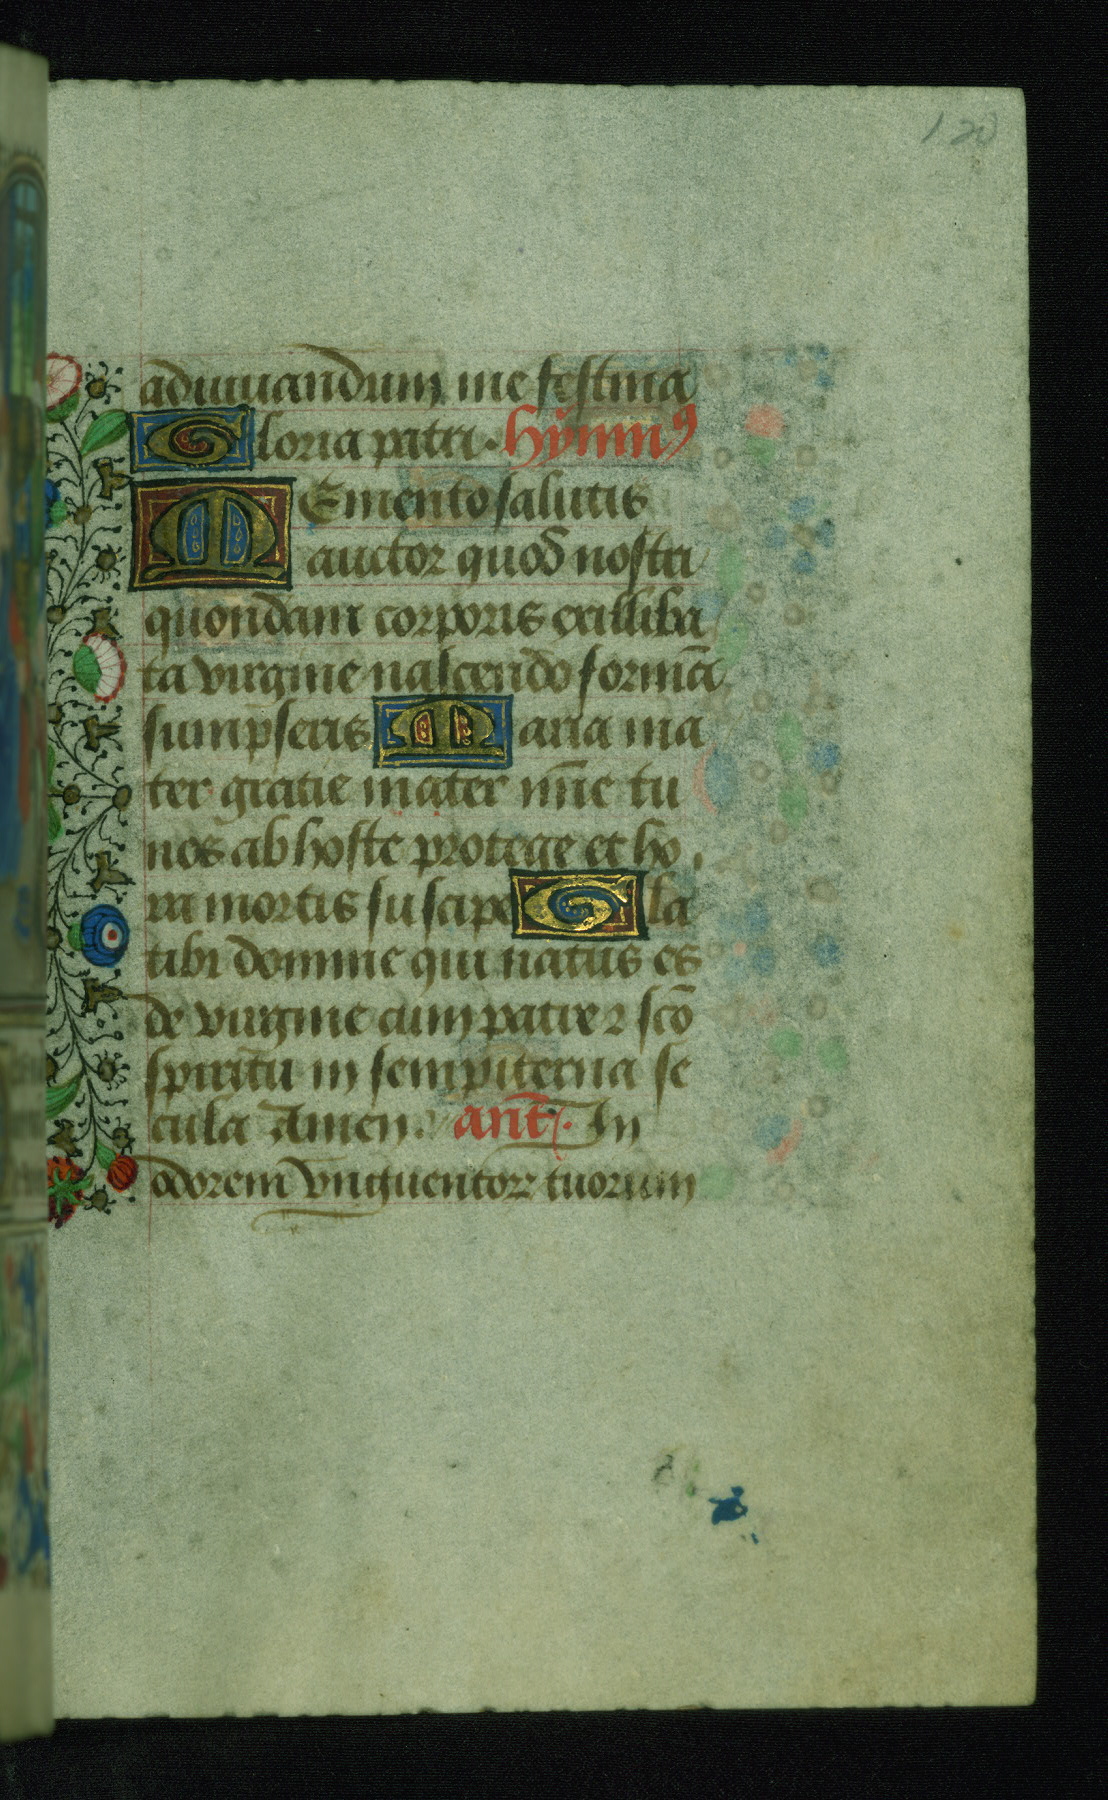 120
adiuuandum me festina
Gloria patri. Hymnꝰ
MEmento salutis
auctor quod nostri
quondam corporis ex illiba
ta virgine nascendo formā
sumpseris Maria ma
ter gratie mater mīe tu
nos ab hoste protege et ho
ra mortis suscipe Gla
tibi domine qui natus es
de virgine cum patre ⁊ scō
spiritu in sempiterna se
cula Amen. anͭ. In
odorem vnguentoꝝ tuorum